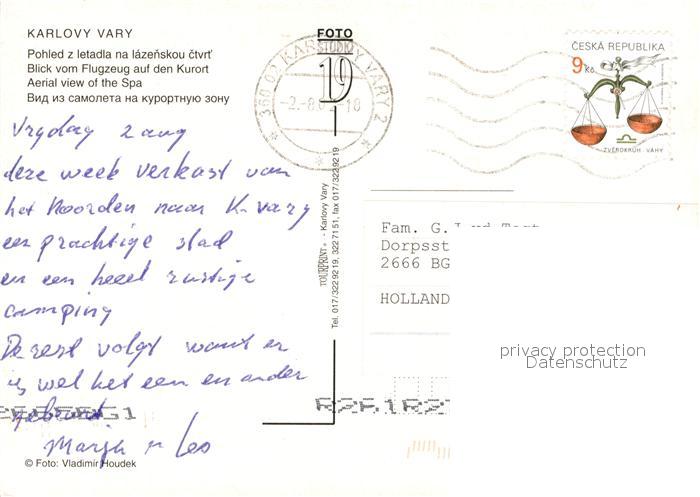 KARLOVY VARY
Pohled z letadla na lázeňskou čtvrť
Blick vom Flugzeug auf den Kurort
Aerial view of the Spa
Вид из самолета на курортную зону
Vrydag 2 aug
deze week verkast van
het Noorden naar K. vary
een prachtige stad
en een heeel rustige
camping
De rest volgt want er
is wel het een en ander
gebeurd.
Marja n Leo
© Foto: Vladimír Houdek
FOTO
STUDIO
19
360 02 KARLOVY VARY 2
-2.-8.
TOURPRINT - Karlovy Vary
Tel. 017/3229219, 3227151, fax 017/3229219
ČESKÁ REPUBLIKA
9 Kč
ZVĚROKRUH VÁHY
Fam. G.
Dorpsst
2666 BG
HOLLAND
privacy protection
Datenschutz